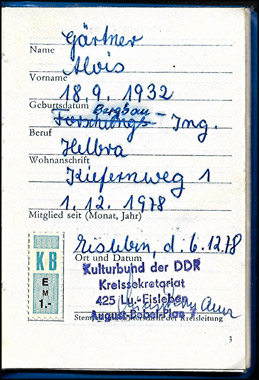 Gärtner
Name
Alois
Vorname
18.9.1932
Geburtsdatum
Bergbau-
Forschungs- Ing.
Beruf
Helbra
Wohnanschrift
Kiefernweg 1
1.12.1978
Mitglied seit (Monat, Jahr)
Eisleben, d. 6.12.78
Ort und Datum
KB
E
M
1.-
Kulturbund der DDR
Kreissekretariat
425 Lu.-Eisleben
August-Bebel-Plan
der Kreisleitung
3